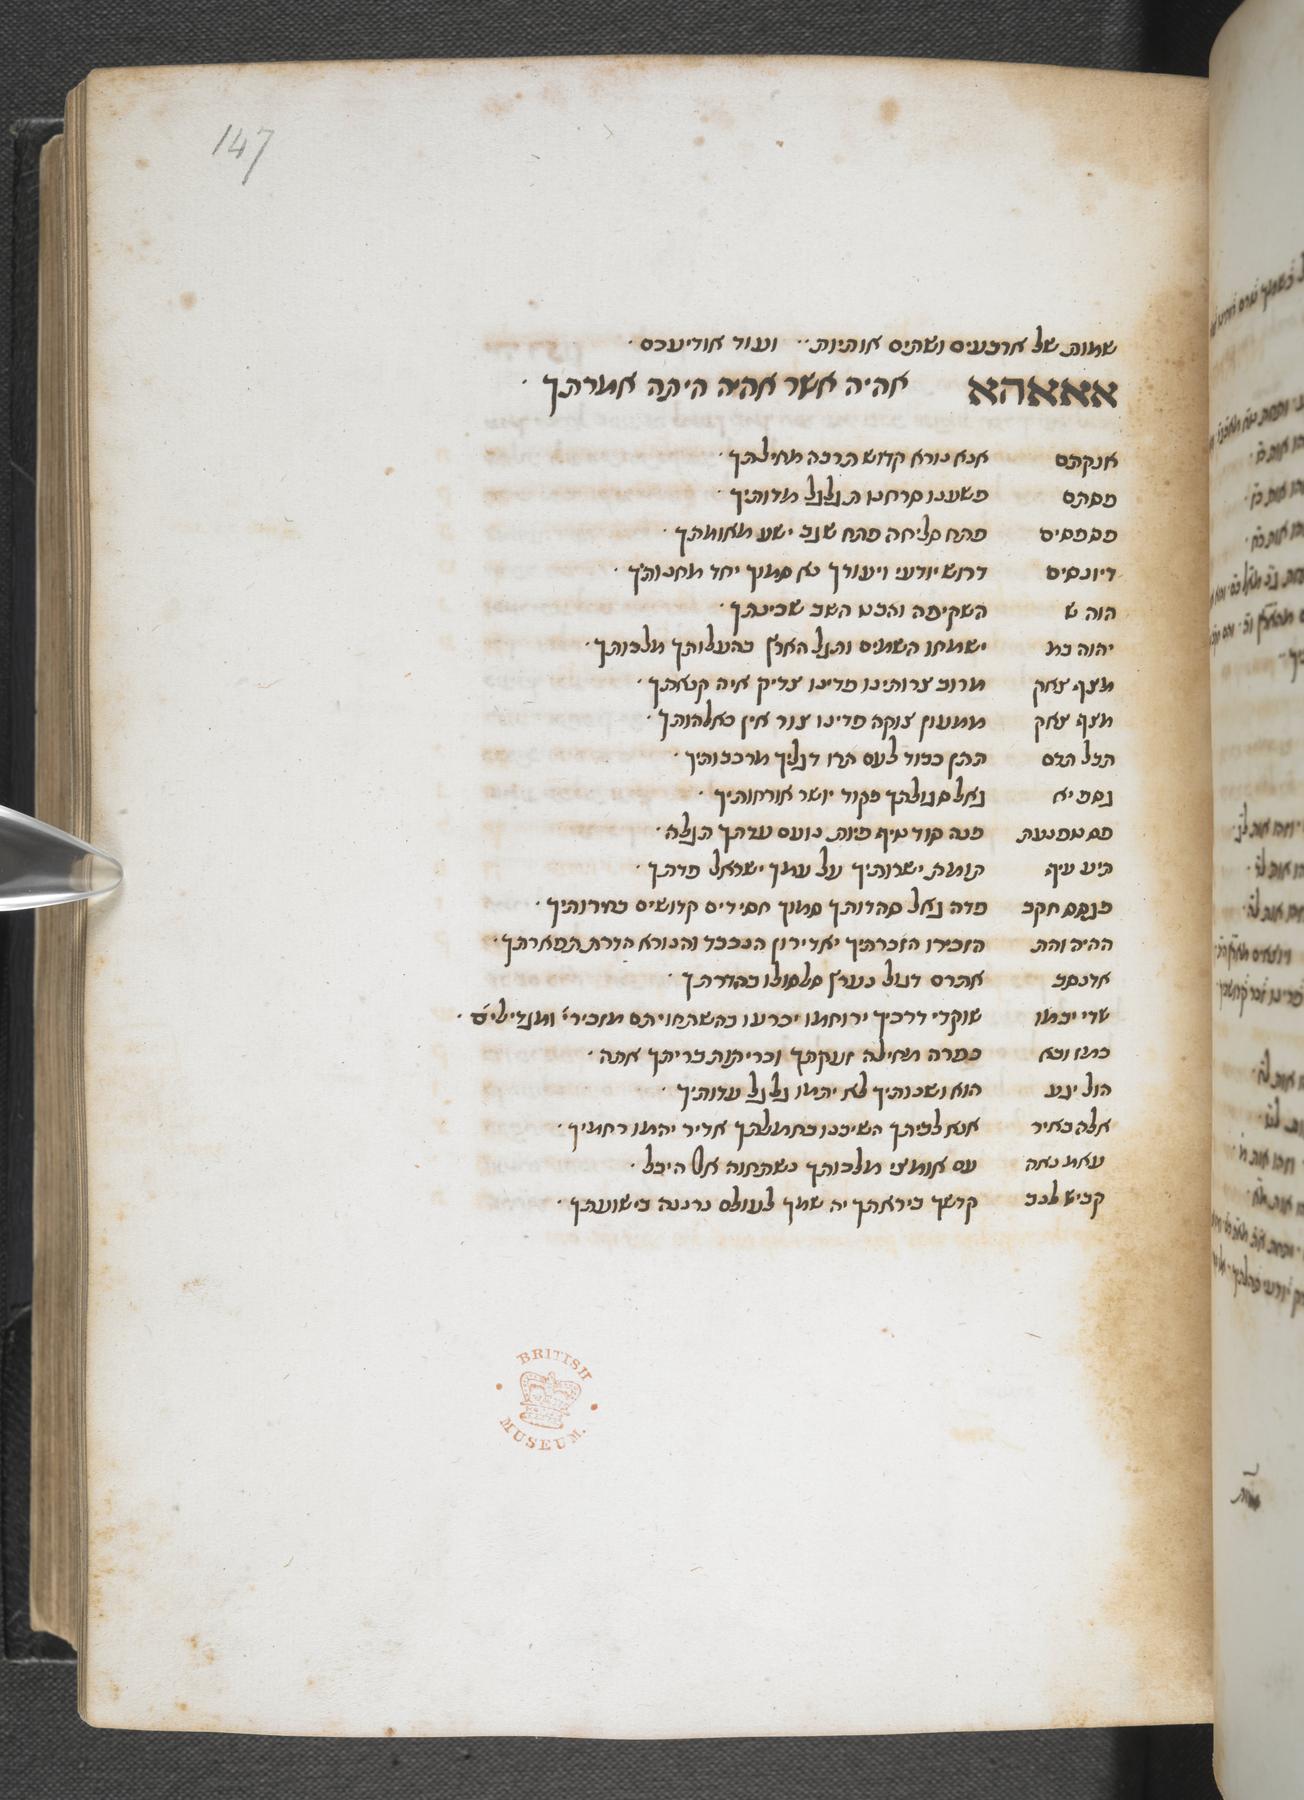 147
שמות של ארבעים ושתים אותיות·· ועוד אודיעכם·
אאאהא אהיה אשר אהיה היתה אמרתך·
אנקתם אנא נורא קדוש תרבה מחילתך·
פסתם פשענו סרחנו תגלגל מדותיך·
פספסים פתח סליחה פתח שגב ישע מאומתך·
דיונסים דרוש יודעי ויעודך נא סמוך יחד מחנותיך·
הוה ש השקיפה והבט השב שכינתך·
יהוה כת ישמחו השמים ותגל הארץ בהעלותך מלכותך·
מצף צאק מרוב צרותינו פדינו צדיק איה קנאתך·
מצף צאק ממעון צוקה פדינו צור אין כאלהותך·
תכל תדם תתן כבוד לעם תרו דגליך מרכבותיך·
גספיא גאל סגולתך פקוד יושר אורחותיך·
פנה עדתך תגלה·
קומת ישרותיך על עמך ישראל פדתך·
פגסם חקב פדה גאל סהדותך סמוך חסידים קדושים בחירותיך·
ההיה והת הזכירו הזכרתיך יאדירון הנכבד והנורא הדרת תפארתך·
אדנסב אתרס דגול נערץ סלסולו בהדרתך·
שדי יכמו שוקדי דרכיך ירוחמו יכרעו בהשתחויתם מזכירי ומגדילים·
כמז וכא כפרה מחילה זעקתך וכריתות בריתך אתה·
הול יגע הוא ושכותיך לא יתמו גלגל עדותיך·
אלה כאיר אנא לביתך השיבנו בחמלתך אדיר יהמו רחמיך·
עאמ נאה עם אומצי מלכותך נשתחוה אל היכל·
קביש לגב קדשך ביראתך יה שמך לעולם נרננה בישועתך·
BRITISH
MUSEUM.